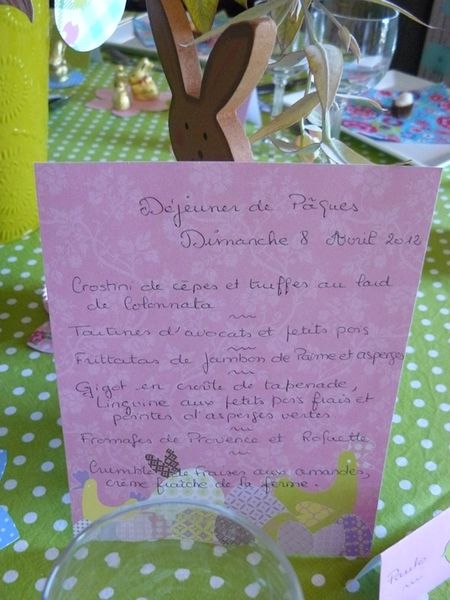 Déjeuner de Pâques
Dimanche 8 Avril 2012
Crostini de cèpes et truffes au lard
de Colonnata
~
Tartines d'avocats et petits pois
~
Frittatas de jambon de Parme et asperges
~
Gigot en croûte de tapenade,
Linguine aux petits pois frais et
pointes d'asperges vertes
~
Fromages de Provence et Roquette
~
Crumbles de fraises aux amandes,
crème fraîche de la ferme.